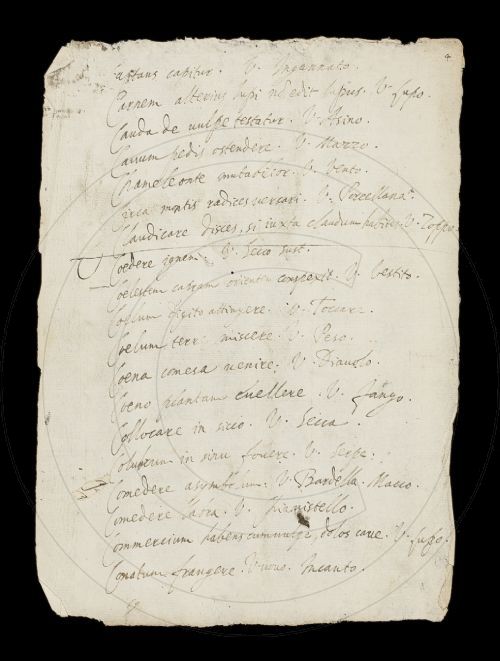 4
captans capitur. V. Ingannato.
Carnem alterius lupi nō edit lupus. V. Lupo.
Cauda de vulpe testatur. V. Asino.
Cavum pedis ostendere. V. Mazzo.
Chameleonte mutabilior. V. Vento.
Circa montis radices versari. V. Porcellana.
Claudicare disces, si iuxta claudum habites. V. Zoppo.
foedere ignem. V. Secco sust.
Coelestem capram orientem conspexit. V. Vestito.
Coelum digito attingere. V. Toccar.
Coelum terr. miscere. V. Peso.
Coena comesa venire. V. Diavolo.
Coeno plantam evellere. V. Fango.
Collocare in sicco. V. Secca.
Colubrum in sinu fovere. V. Serpe.
Comedere asymbolum. V. Bardella. Macco.
Comedere V.
Commercium habens cum vulpe, dolos cave. V. Lupo.
Conatum frangere. Vuovo. Incanto.